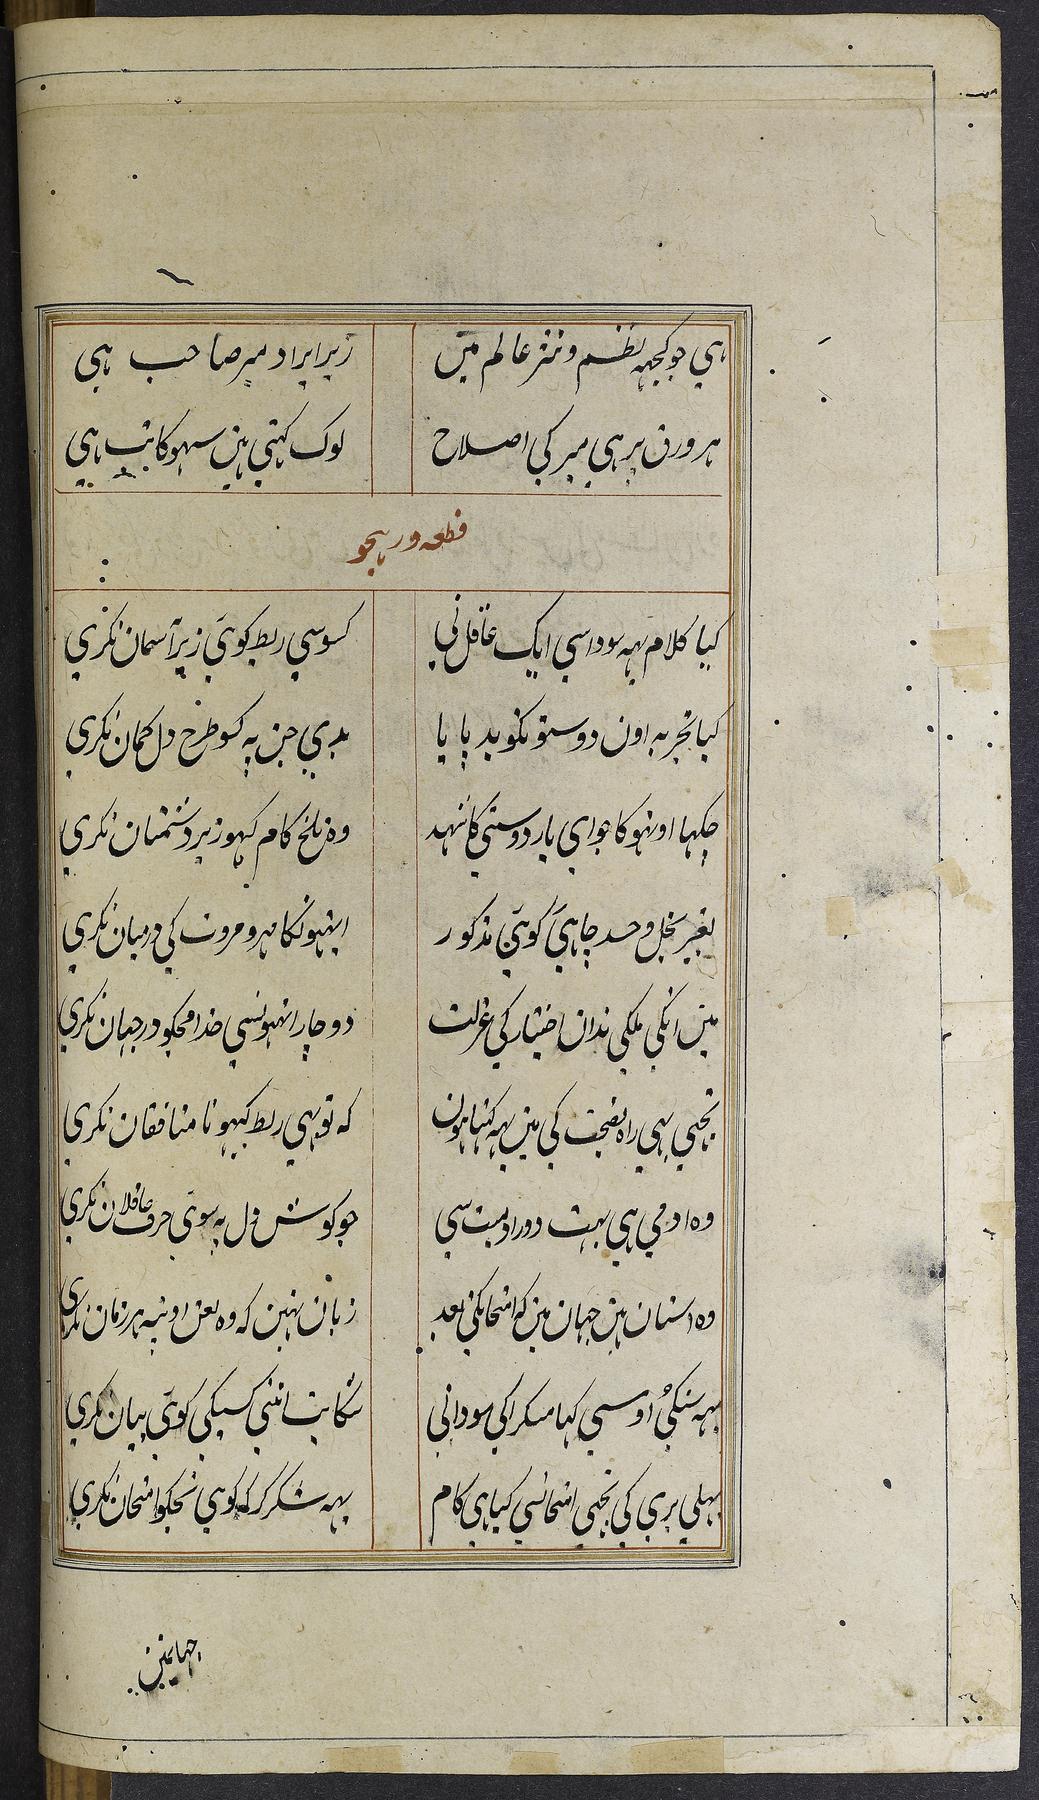 ہی جو کچہہ نظم و نثر عالم مین
زیر ایراد میر صاحب ہی
ہر ورق پر ہی میر کی اصلاح
لوک کہتی ہین سہو کاتب ہی
قطعہ در ہجو
کیا کلام یہہ سودا سی ایک عاقل نی
کسو سی ربط کوئی زیر آسمان نکری
کیا تجربہ اون دوستونکو بد پایا
بدی جن پہ کسو طرح دل کمان نکری
چکہا اونہو کا جو ای یار دوستی کا شہد
وہ تلخ کام کبہو زہر دشمنان نکری
بغیر بخل و حسد چاہی کوئی مذکور
انہونکا مہر و مروت کی درمیان نکری
مین انکی ملکی ندان اختیار کی عزلت
دو چار انہونسی خدا مجکو در جہان نکری
تجہی بہی راہ نصیحت کی مین یہہ کہتا ہون
کہ تو بہی ربط کبہو نا منافقان نکری
وہ ادمی ہی بہت دور ادمیت سی
جو کوش دل پہ سوی حرف عاقلان نکری
وہ انسان ہین جہان مین کہ امتحانکی بعد
زبان نہین کہ وہ لعن اونپہ ہر زمان نکری
یہہ سنکی اوسی کہا مسکرا کی سودا نی
شکایت اتنی کسیکی کوئی بیان نکری
بہلی بری کی تجہی امتحانسی کیا ہی کام
یہہ شکر کر کہ کوئی تجکو امتحان نکری
جہانمین